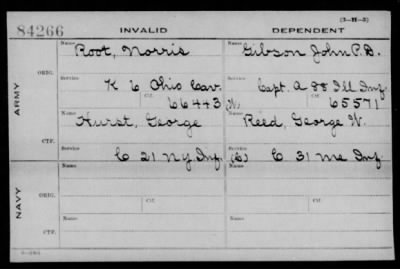 (3-H-3)
84266 INVALID DEPENDENT
Name Root, Norris Name Gibson John P.D.
ARMY
ORIG.
Service K 6 Ohio Cav. Service Capt. A 88 Ill Inf.
Ctf. 66443 (W) Ctf. 65571
Name Hurst, George Name Reed, George W.
CTF.
Service C 21 NY Inf. Service (C) C 31 Me Inf.
NAVY
Name Name
ORIG.
Service Ctf. Service Ctf.
Name Name
CTF.
Service Service